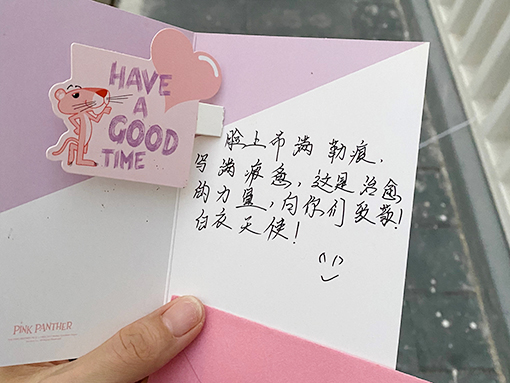 HAVE
A
GOOD
TIME
脸上布满勒痕,
写满疲惫,这是治愈
的力量,向你们致敬!
白衣天使!
PINK PANTHER